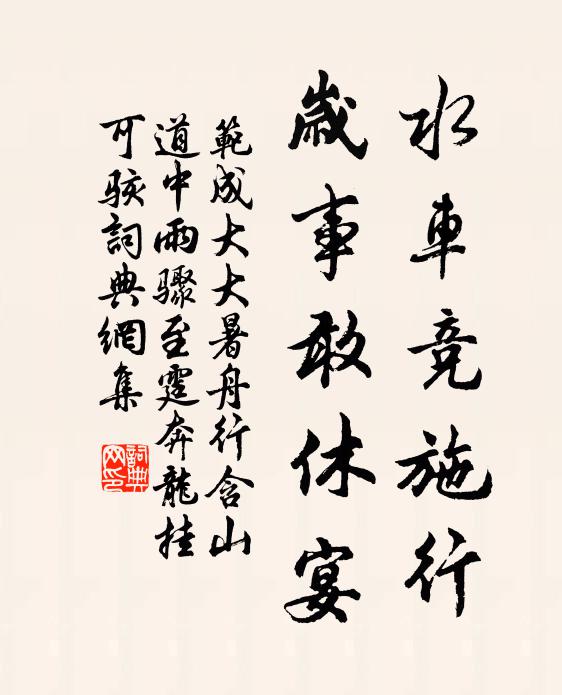 水車竞施行
歳事敢休宴
範成大大暑舟行含山
道中雨驟至霆奔龍挂
可駭詞典網集
詞典
网印